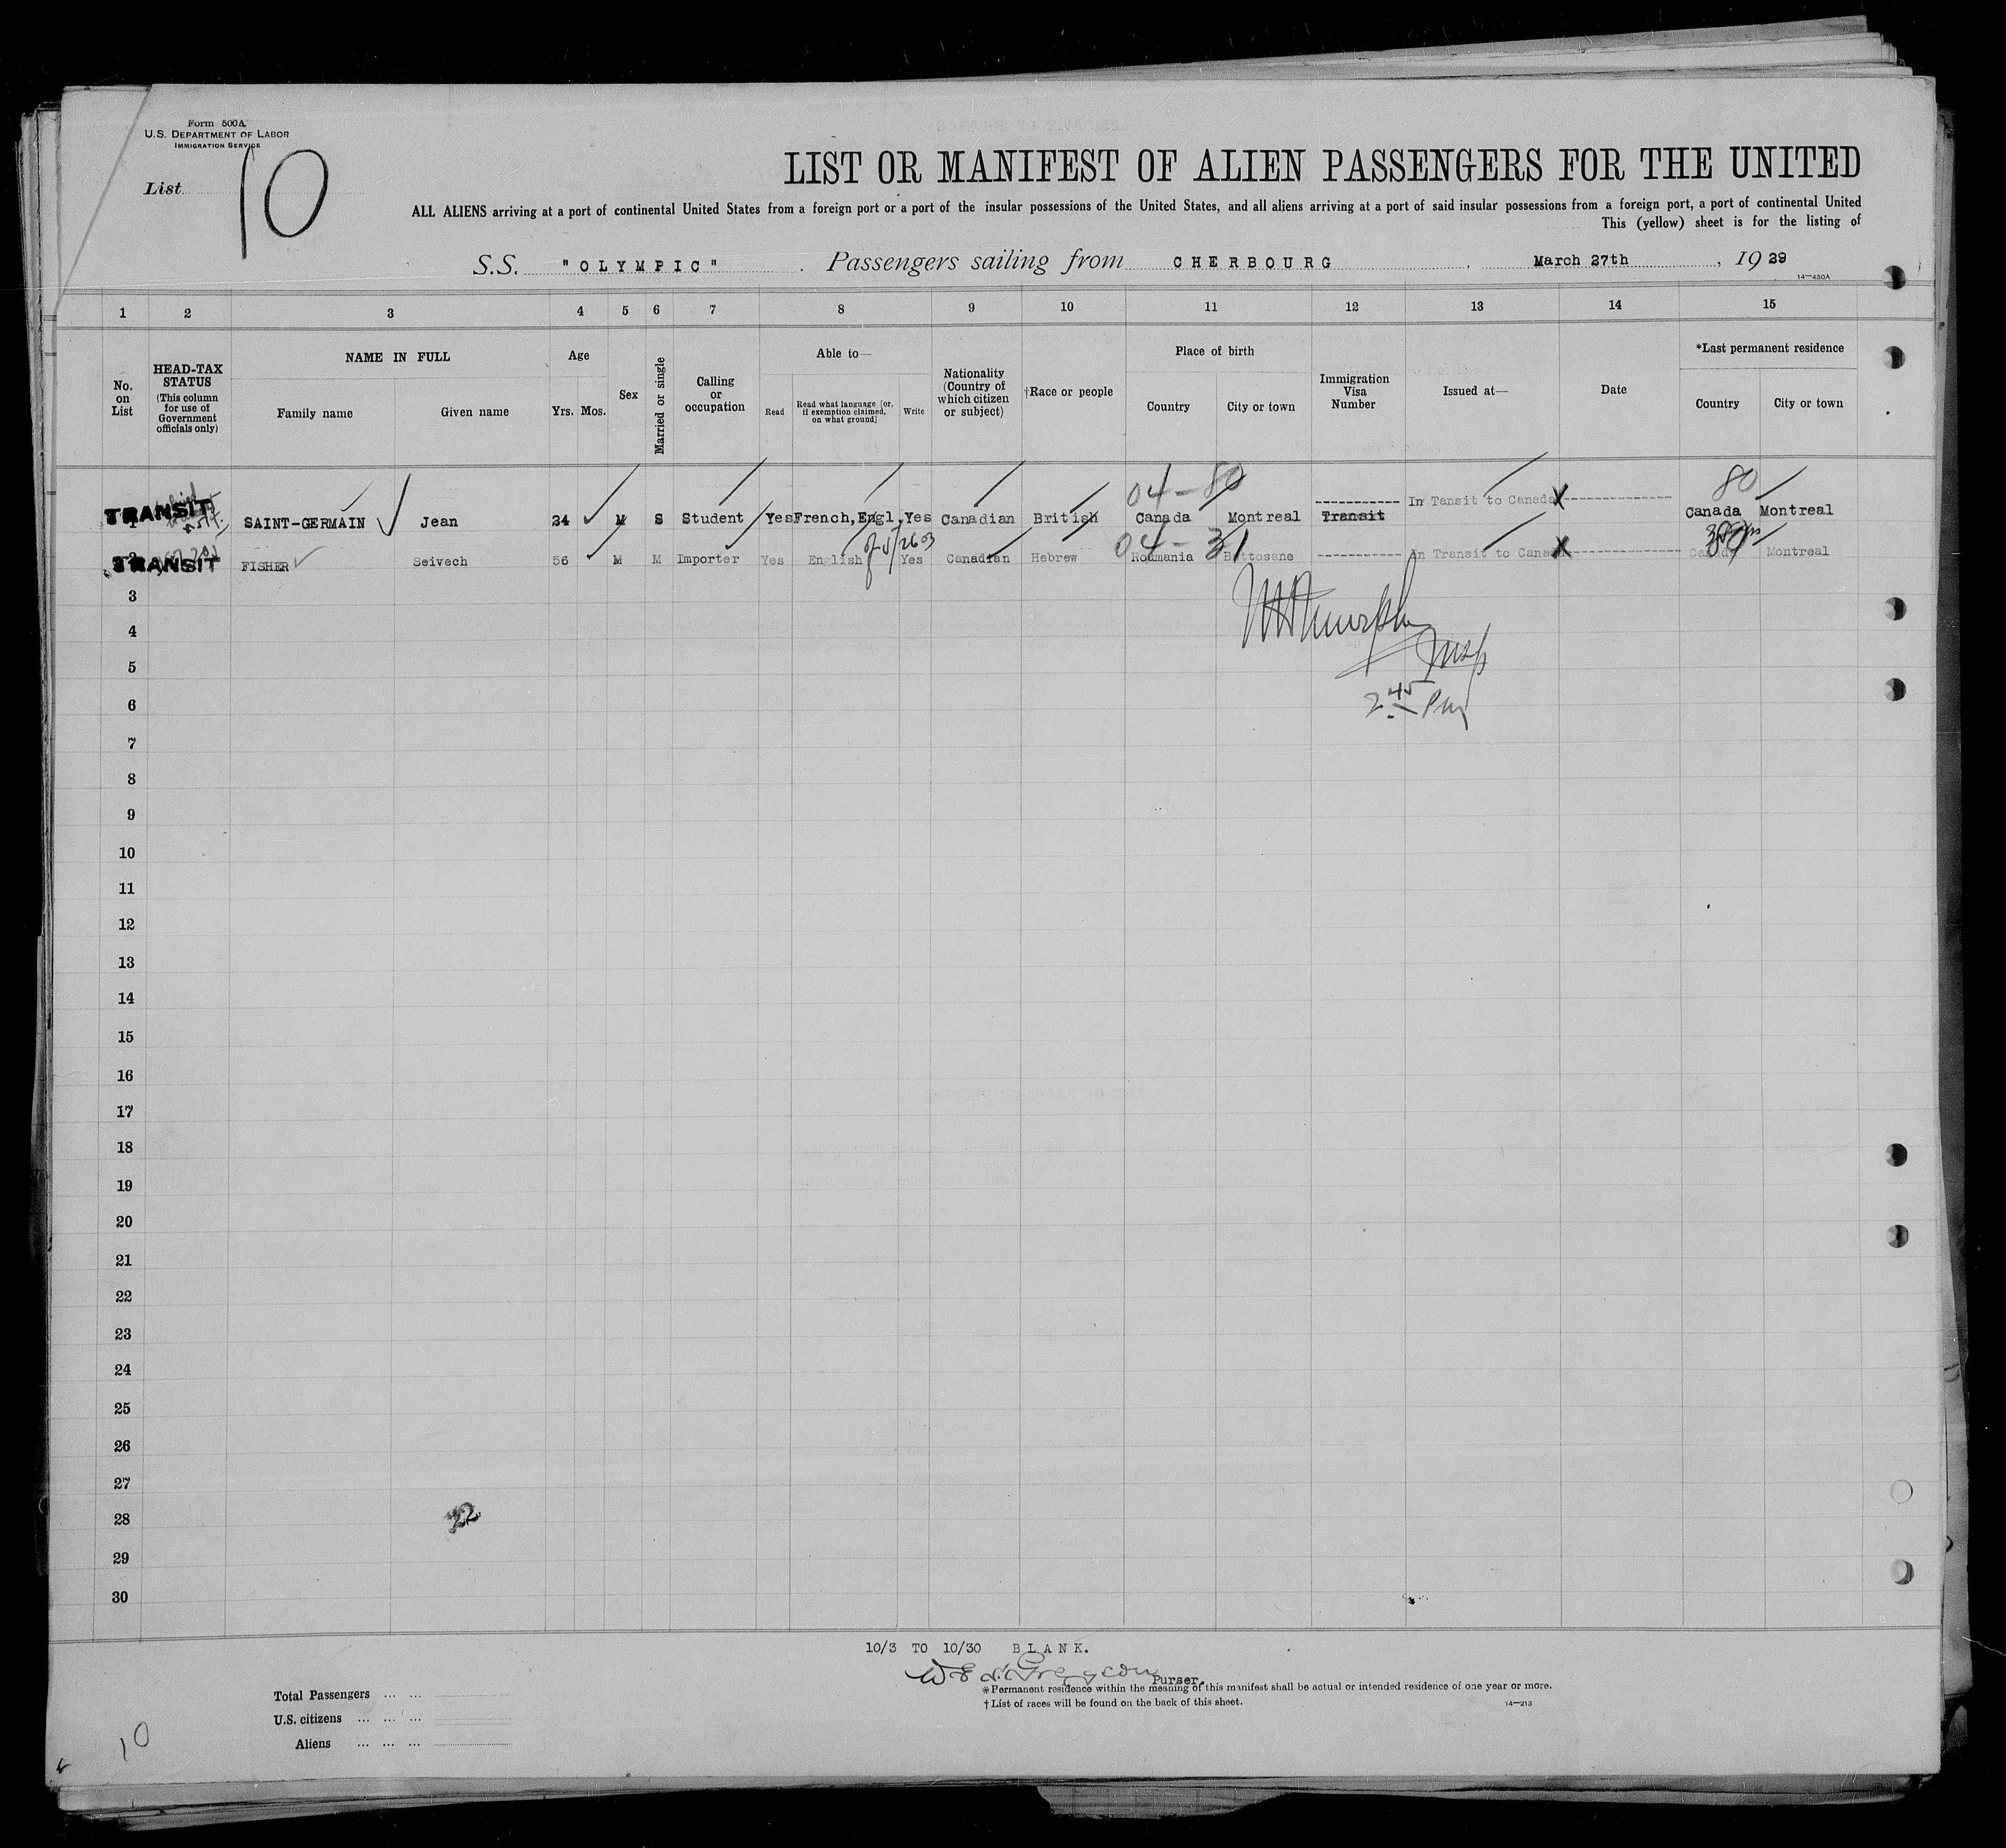 Form 500A
U.S. DEPARTMENT OF LABOR
IMMIGRATION SERVICE
List 10
LIST OR MANIFEST OF ALIEN PASSENGERS FOR THE UNITED
ALL ALIENS arriving at a port of continental United States from a foreign port or a port of the insular possessions of the United States, and all aliens arriving at a port of said insular possessions from a foreign port, a port of continental United
This (yellow) sheet is for the listing of
S.S. "OLYMPIC" . Passengers sailing from CHERBOURG , March 27th , 19 29
14—430A
1 2 3 4 5 6 7 8 9 10 11 12 13 14 15
No. on List
HEAD-TAX STATUS (This column for use of Government officials only)
NAME IN FULL
Family name Given name
Age
Yrs. Mos.
Sex
Married or single
Calling or occupation
Able to—
Read
Read what language [or, if exemption claimed, on what ground]
Write
Nationality (Country of which citizen or subject)
†Race or people
Place of birth
Country City or town
Immigration Visa Number
Issued at—
Date
*Last permanent residence
Country City or town
04-80 80
TRANSIT 1 SAINT-GERMAIN Jean 24 M S Student Yes French, Engl, Yes Canadian British Canada Montreal Transit In Tansit to Canada X Canada Montreal
04-31
TRANSIT 2 FISHER Seivech 56 M M Importer Yes English Yes Canadian Hebrew Roumania Bottosane In Transit to Canada X Canada Montreal
3
4
Murphy
5
Insp
6
2.45 Pm
7
8
9
10
11
12
13
14
15
16
17
18
19
20
21
22
23
24
25
26
27
28
22
29
30
10/3 TO 10/30 BLANK.
Purser.
*Permanent residence within the meaning of this manifest shall be actual or intended residence of one year or more.
†List of races will be found on the back of this sheet.
14—213
Total Passengers ... ...
U.S. citizens ... ... ...
Aliens ... ... ...
10